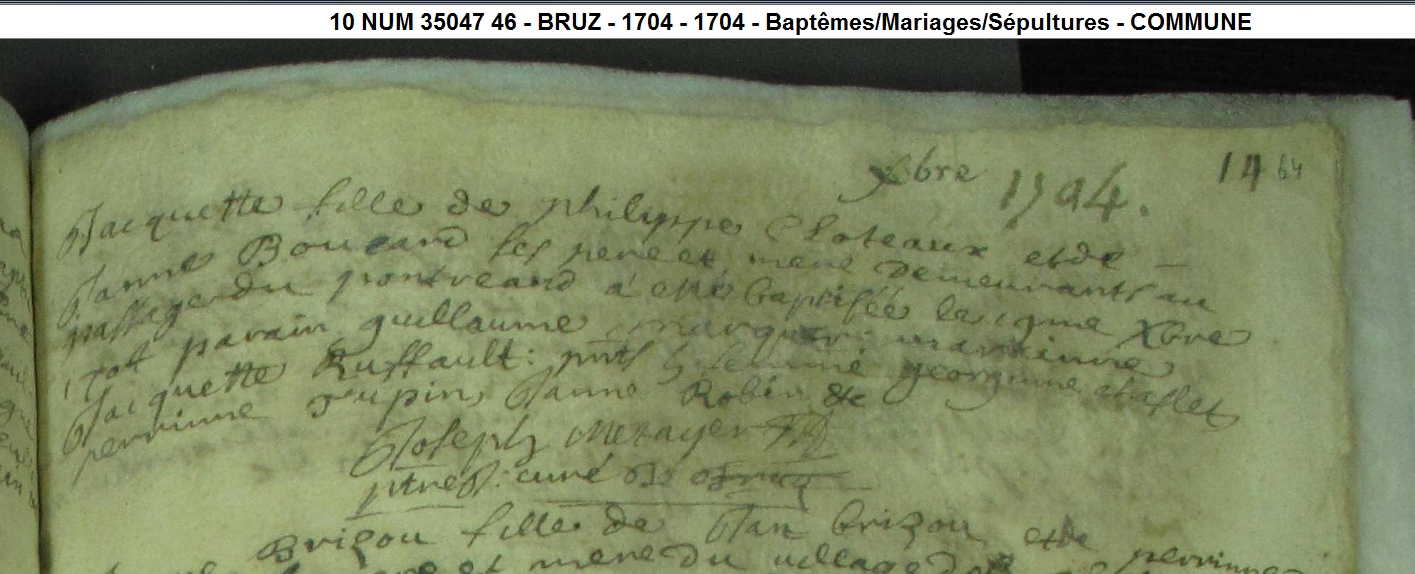 10 NUM 35047 46 - BRUZ - 1704 - 1704 - Baptêmes/Mariages/Sépultures - COMMUNE
xbre 1704. 14 64
Jacquette fille de philippe Cloteaux et de
Janne Bouzard ses pere et mere demeurants au
passage du pontreand a esté baptisée le Xbre
1704 parain guillaume marquer maraine
Jacquette Ruffault: pnts georginne challet
perrinne Janne Robin &c
Joseph Metayer
ptre curé de Bruz
Brizou fille de Jan brizou et de perrinne
pere et mere du village de